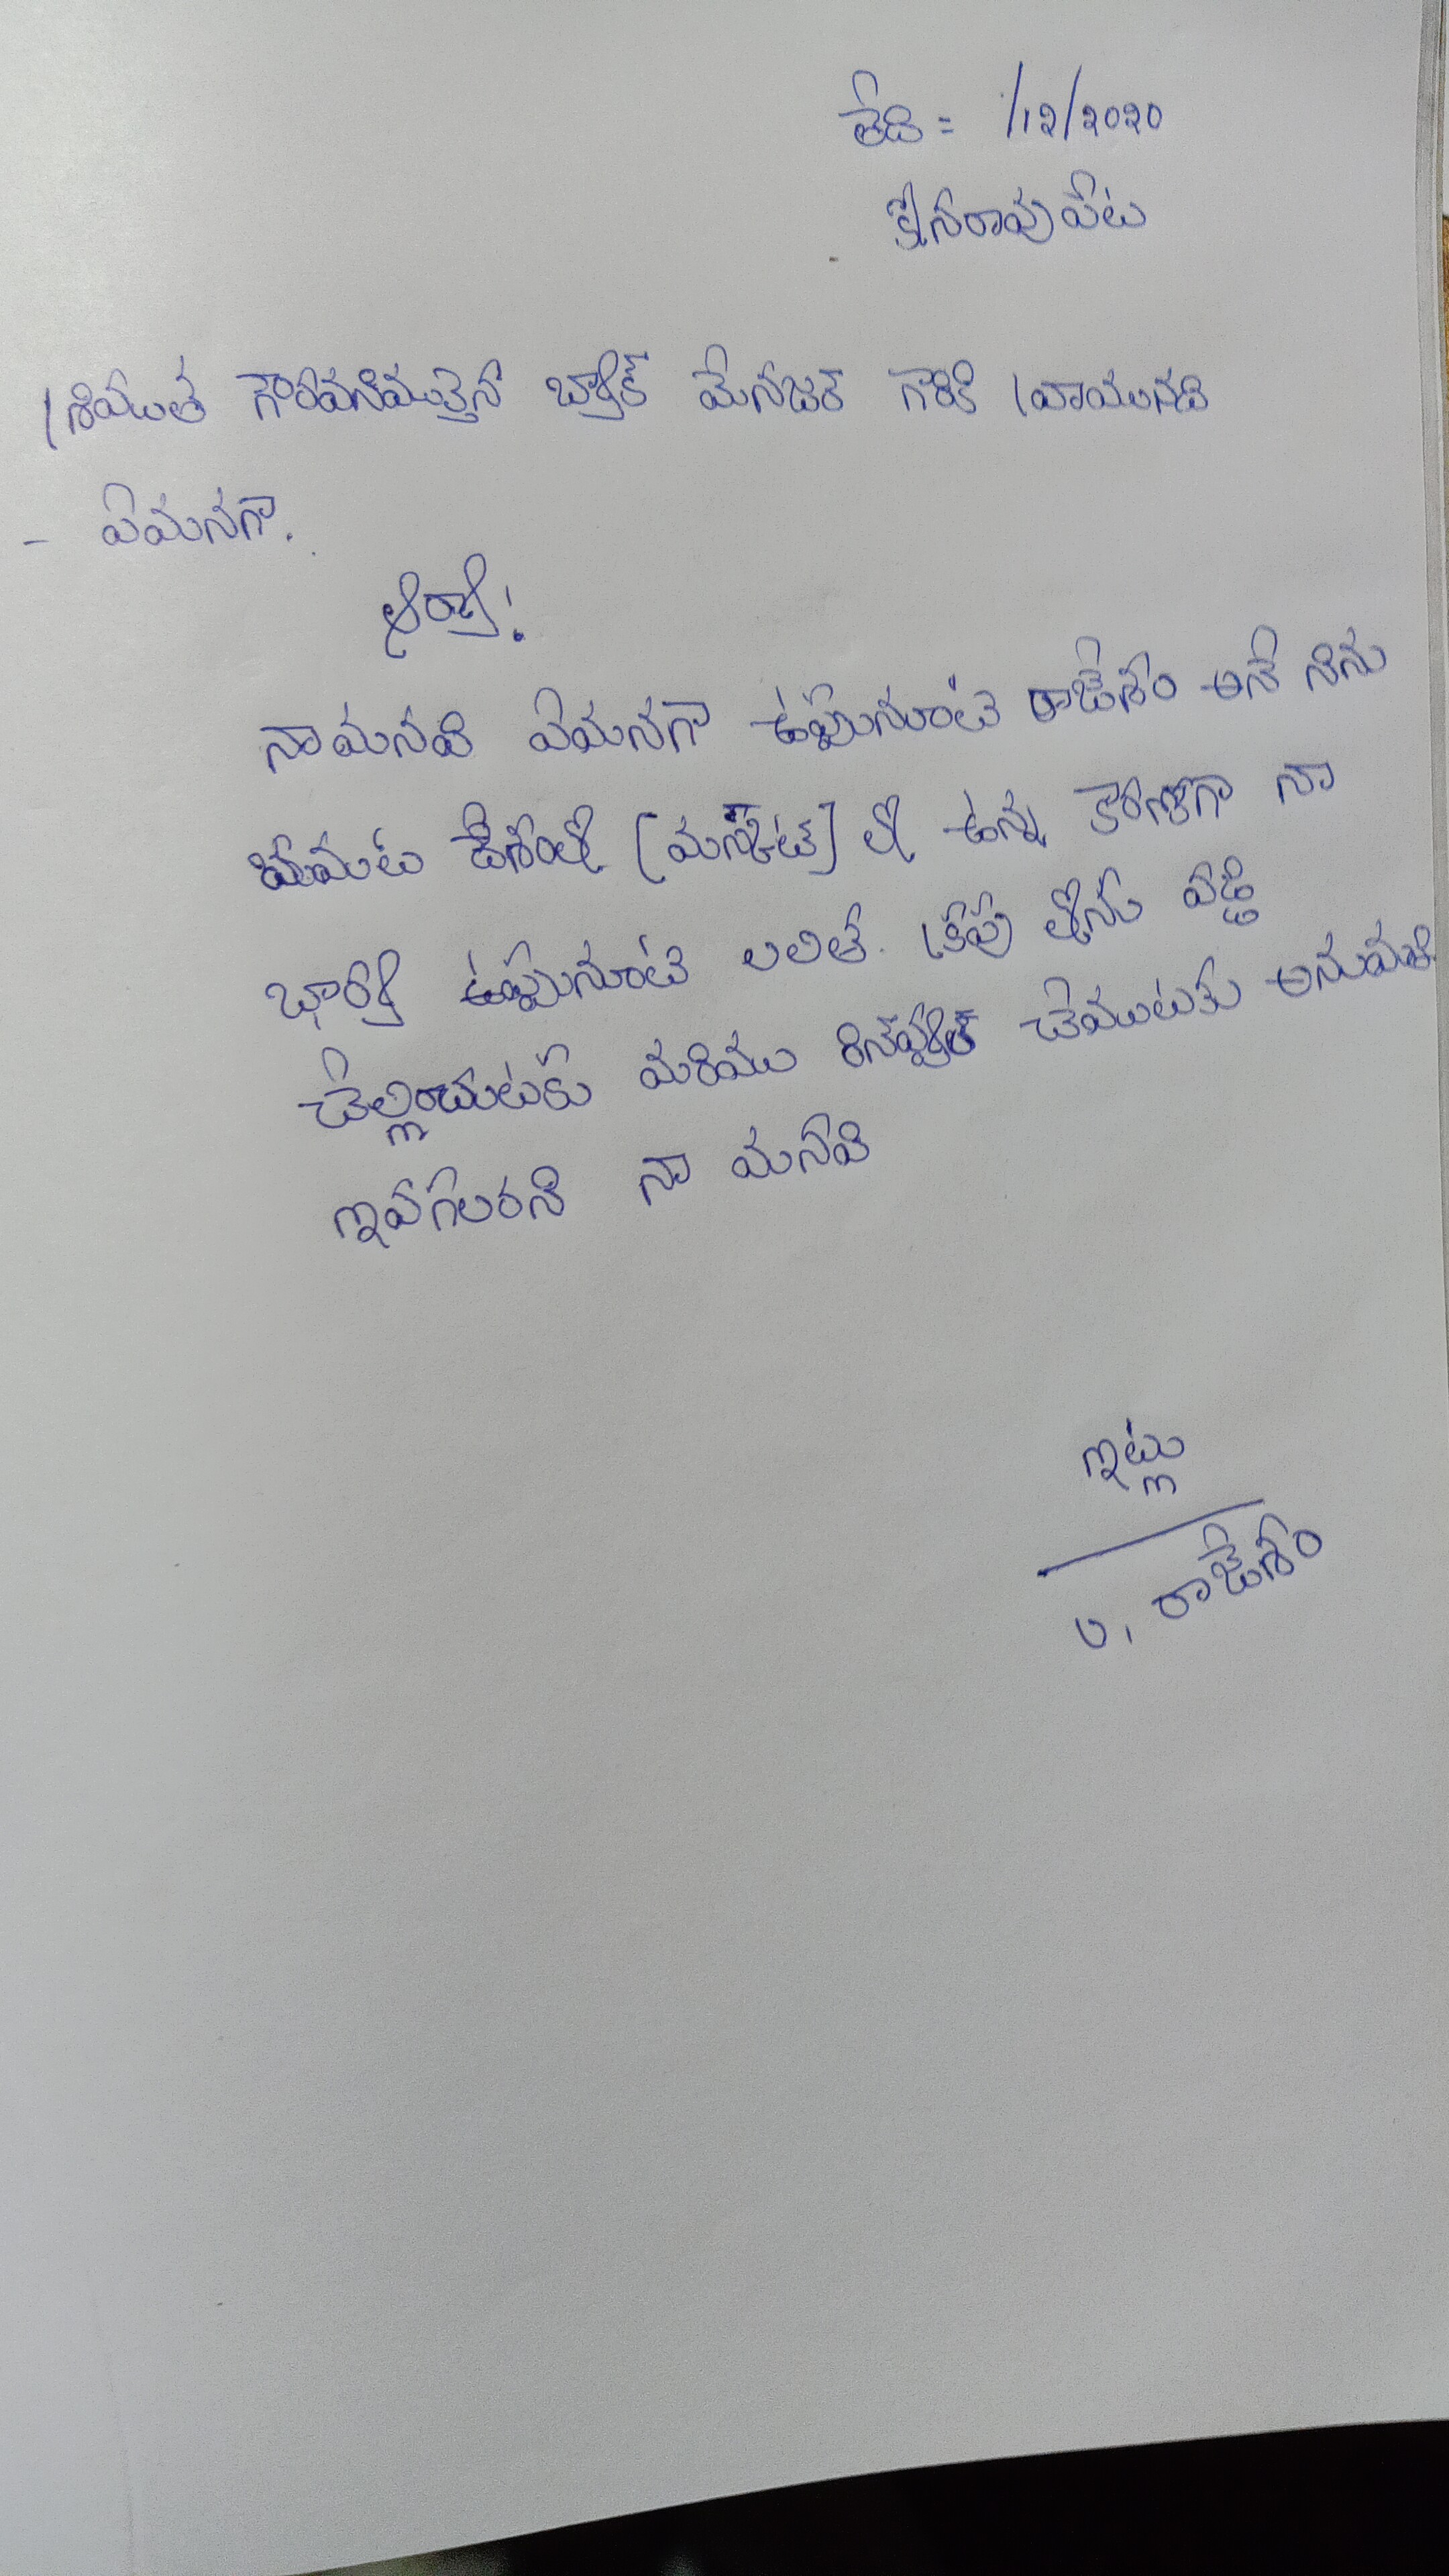 తేది = /12/2020
కోనరావుపేట
శ్రీయుత గౌరవనియులైన బ్యాంక్ మేనజర్ గారికి వ్రాయునది
- ఏమనగా.
ఆర్యా!
నామనవి ఏమనగా ఉప్పునూంటి రాజేశం అనే నేను
యమట దేశంలో (మస్కట్) లో ఉన్న కారణంగా నా
భార్య ఉప్పునూంటి లలిత. క్రాపు లోను వడ్డి
చెల్లించుటకు మరియు రినివల్ చేయుటకు అనుమతి
ఇవగలరని నా మనవి
ఇట్లు
U, రాజేశం